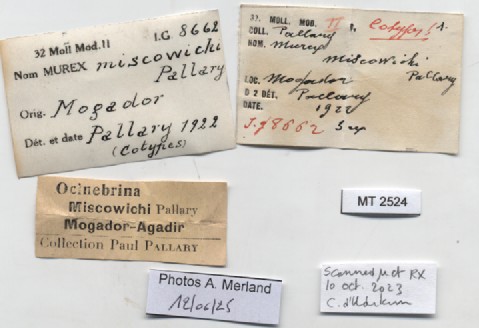 I.G. 8662
32 Moll Mod. II
Nom MUREX miscowichi
Pallary
Orig. Mogador
Dét. et date Pallary 1922
(Cotypes)
32. MOLL. MOD. II P. Cotypes
COLL. Pallary
NOM. Murex
miscowichi
Pallary
LOC. Mogador
D 2 DÉT. Pallary
DATE. 1922
I.G. 8662
Ocinebrina
Miscowichi Pallary
Mogador-Agadir
Collection Paul PALLARY
MT 2524
Photos A. Merland
12/06/25
Scanned RX
10 oct. 2023